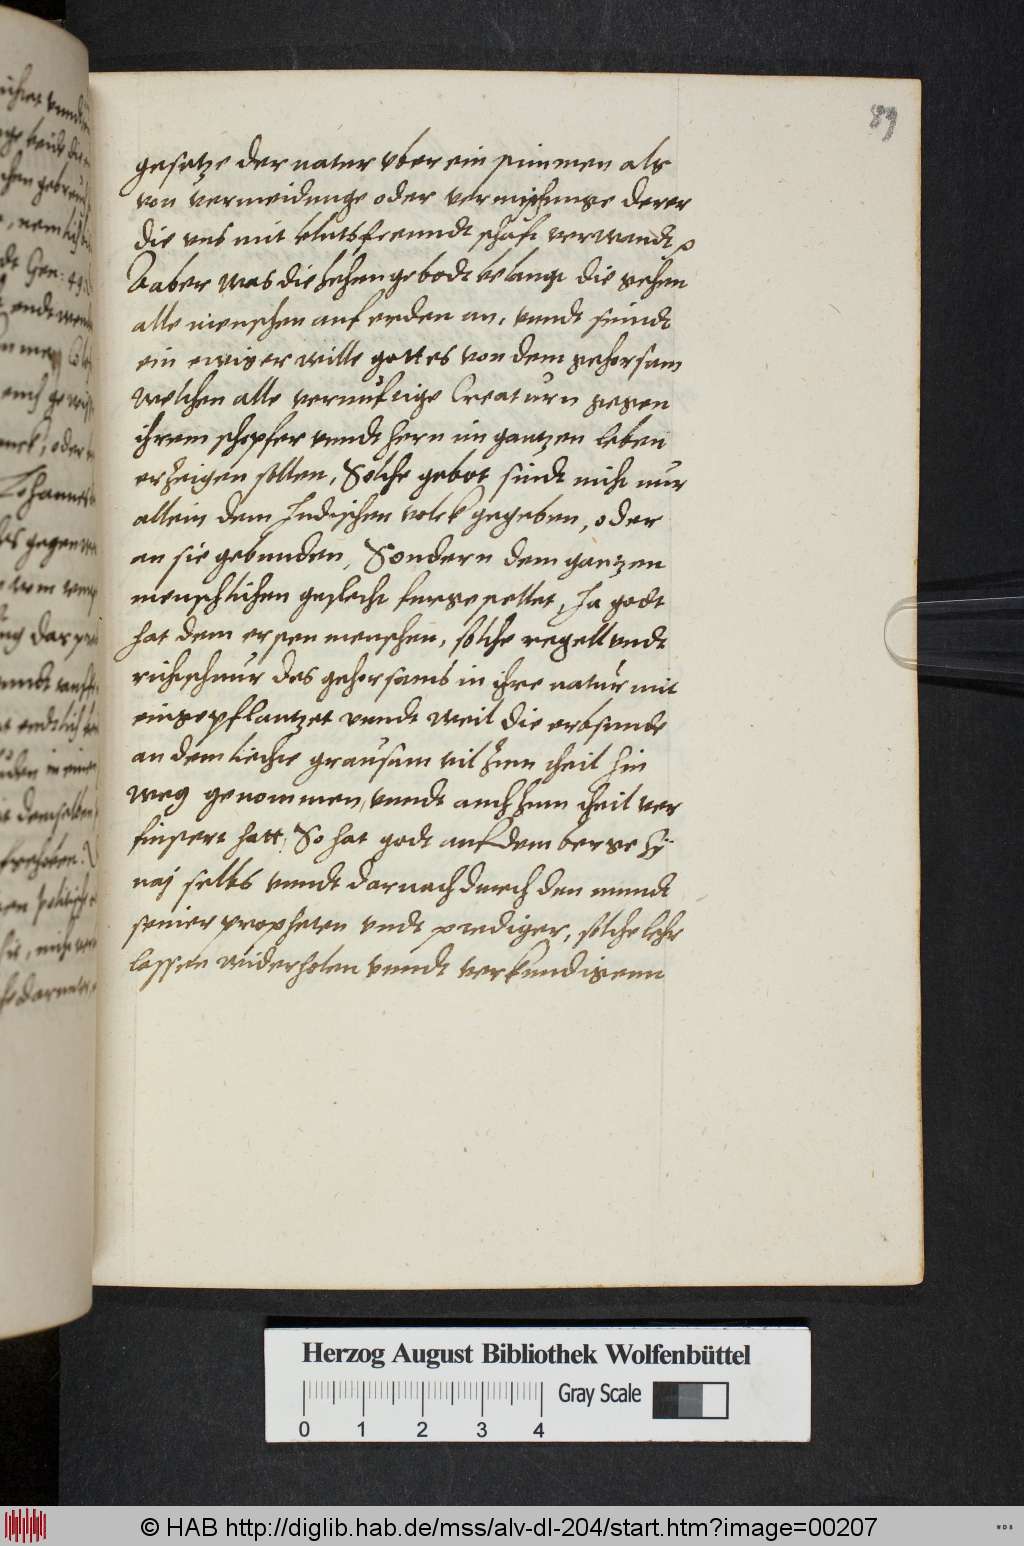 89
gesetze der natur vber ein stimmen als
von vermeidunge oder vermischunge derer
die vns mit blutsfreundtschaft verwandt
aber was die zehen gebodt belangt die gehen
alle menschen auf erden an, vnndt seindt
ein ewiger wille gottes von dem gehorsam
welchen alle vernuftige Creaturn gegen
ihrem schepfer vnndt hern im gantzen leben
erzeigen sollen, Solche gebot sindt nicht nur
allein dem Judischen volck gegeben, oder
an sie gebunden, Sondern dem gantzen
menschlichen geslecht furgestellet, Ja godt
hat dem ersten menschen, solche regell vndt
richtschnur des gehorsams in ihre natur mit
eingepflantzet vnndt weil die erbsunde
an dem liechte grausam vil zum theil hin
weg genommen, vnndt auch zum theil ver
finstert hatt, So hat godt auf dem berge Sÿ
naj selbs vnndt darnach durch den mundt
seiner propheten vndt prediger, solche lehr
lassen widerholen vnndt verkundigenn
Herzog August Bibliothek Wolfenbüttel
0 1 2 3 4
Gray Scale
© HAB http://diglib.hab.de/mss/alv-dl-204/start.htm?image=00207